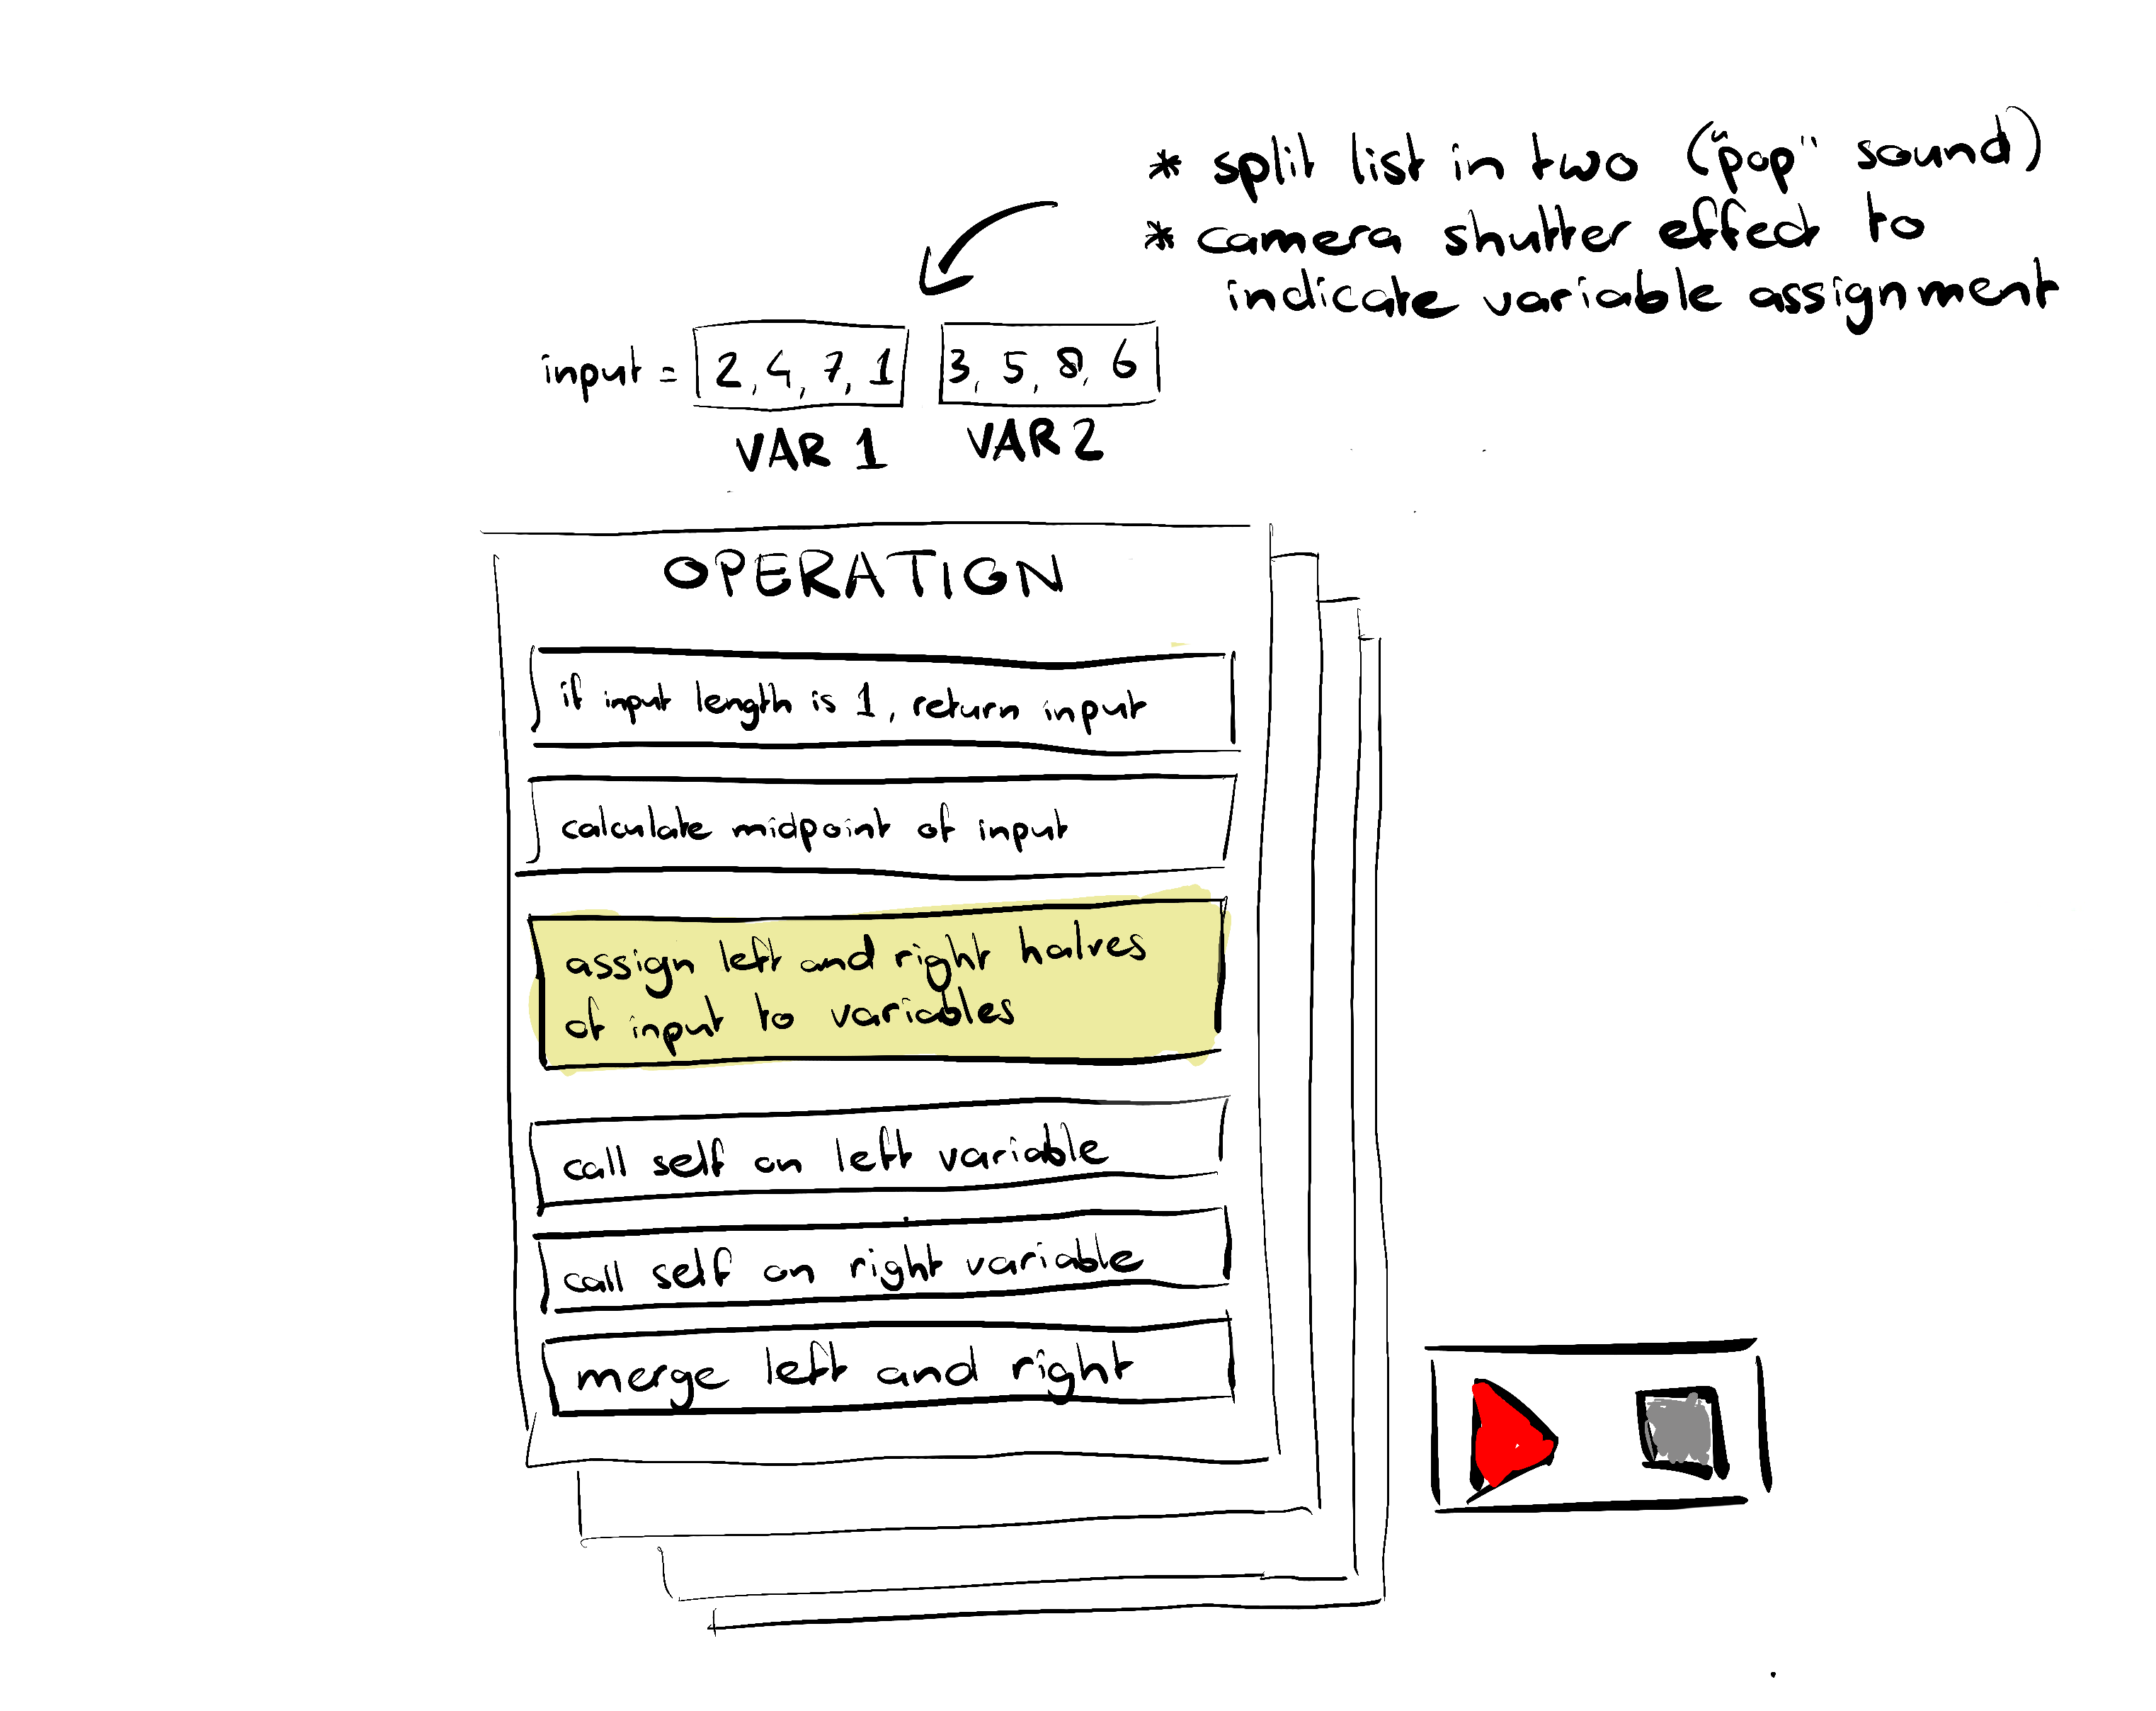 * split list in two ("pop" sound)
* camera shutter effect to
indicate variable assignment
input = 2, 4, 7, 1 3, 5, 8, 6
VAR 1 VAR 2
OPERATION
if input length is 1, return input
calculate midpoint of input
assign left and right halves
of input to variables
call self on left variable
call self on right variable
merge left and right